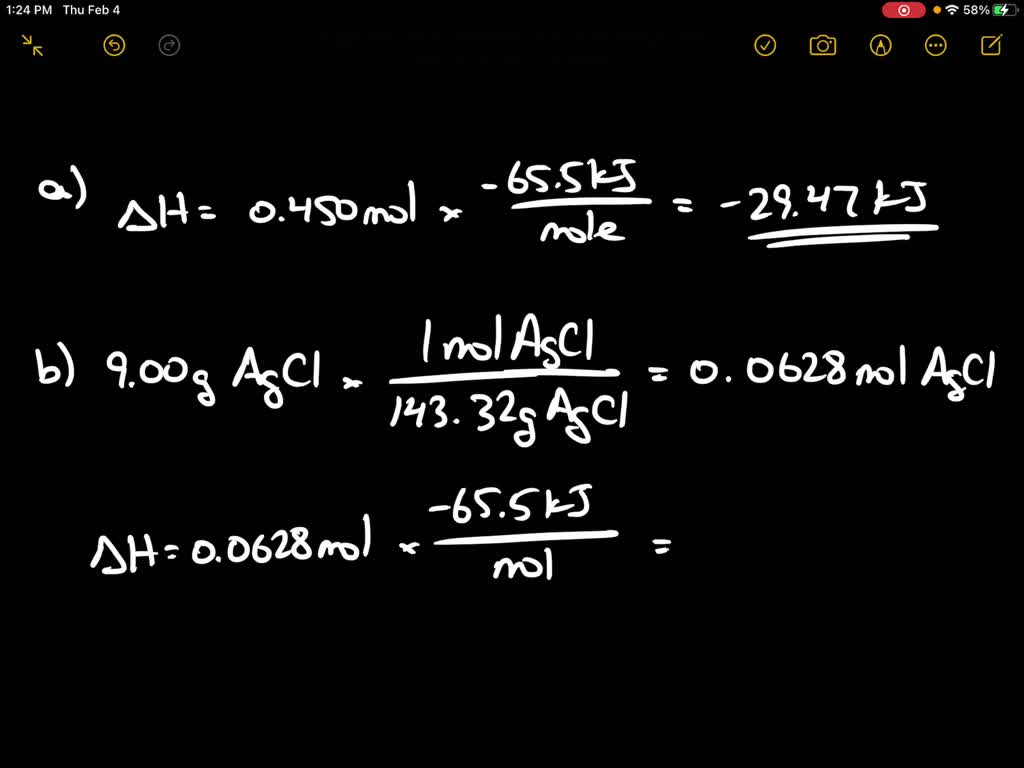 1:24 PM Thu Feb 4 58%
a) ΔH = 0.450 mol × -65.5 kJ / mole = -29.47 kJ
b) 9.00g AgCl × 1 mol AgCl / 143.32g AgCl = 0.0628 mol AgCl
ΔH = 0.0628 mol × -65.5 kJ / mol =